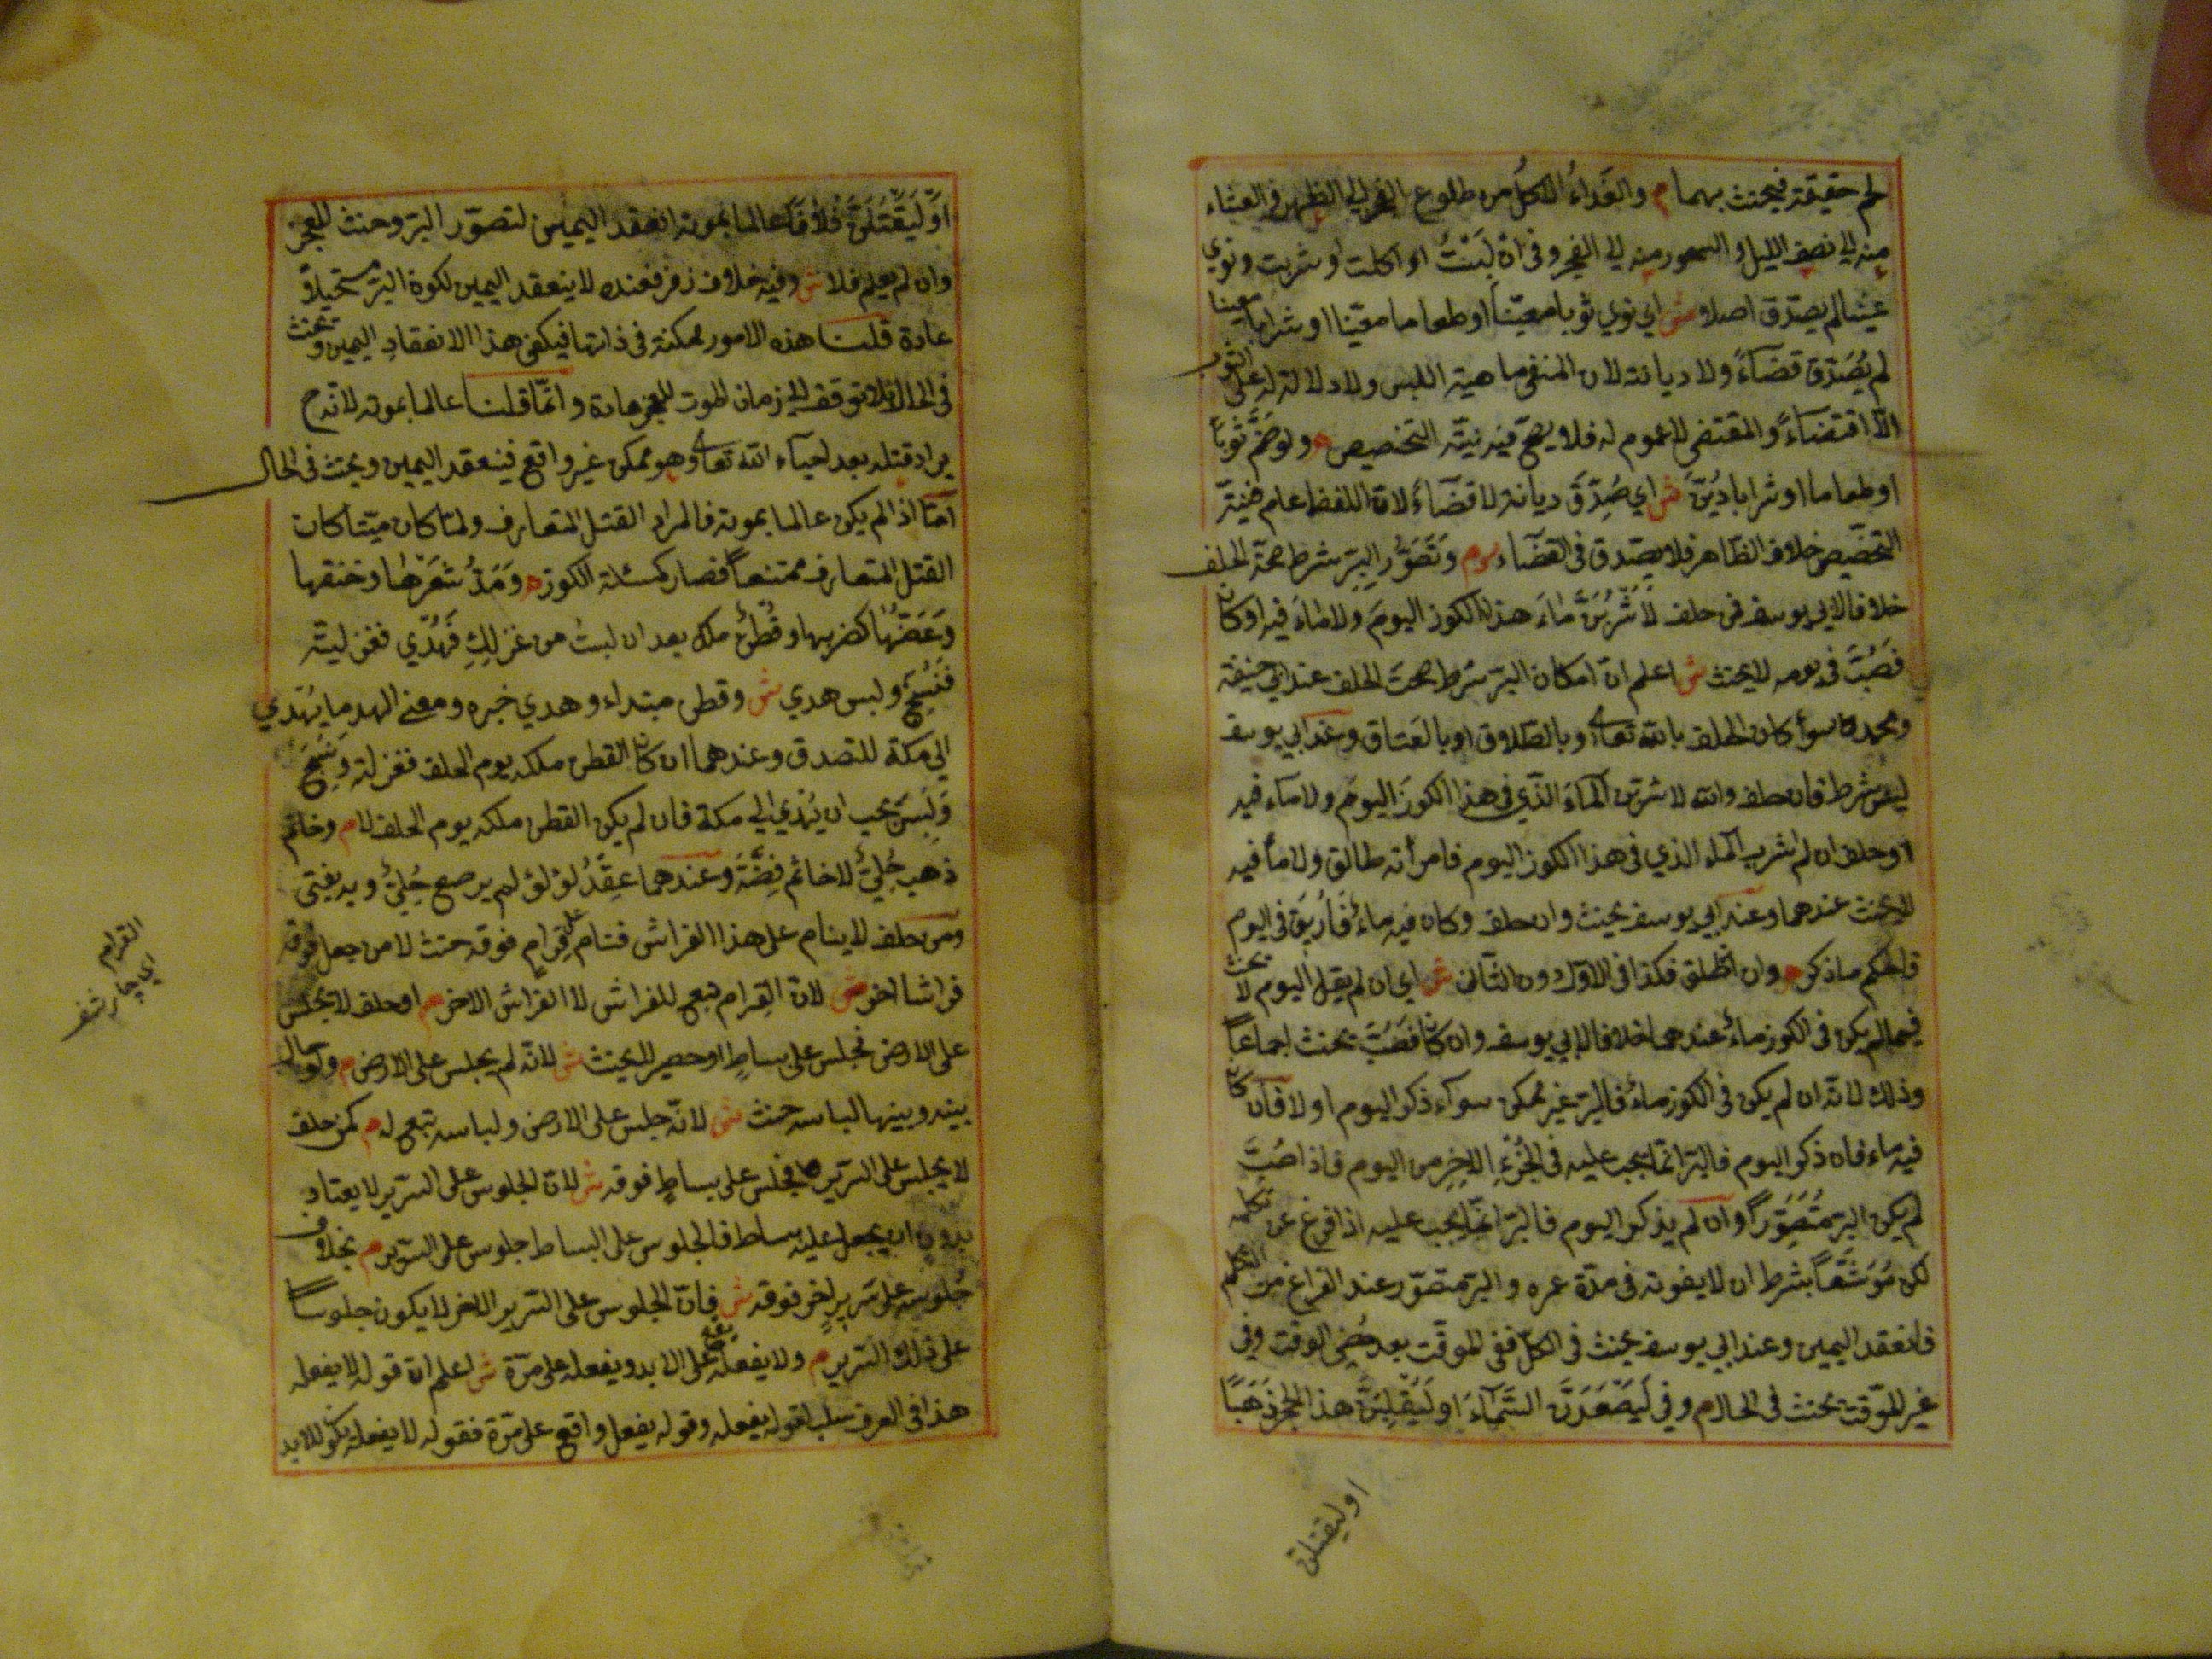 لحم حقيقة فيحنث بهما م والغداء الاكل من طلوع الفجر الى الظهر والعشاء
منه الى نصف الليل والسحور منه الى الفجر وفى ان لبست او اكلت او شربت ونوى
عينا لم يصدّق اصلا ش اى نوى ثوبا معيّنا او طعاما معيّنا او شرابا معينا
لم يُصَدَّق قضاءً ولا ديانة لان المنفى ماهية اللبس ولا دلالة له على الثوب
الّا اقتضاءً والمقتضى لا عموم له فلا يصحّ فيه نيّة التخصيص م ولو ضمّ ثوبًا
او طعاما او شرابا دُيِّنَ ش اى صُدِّقَ ديانة لا قضاءً لانّ اللفظ عام فنيّة
التخصيص خلاف الظاهر فلا يصدق فى القضاء م وتَصَوُّرِ البِرّ شرط صحة الحلف
خلافا لابى يوسف فمن حلف لأشربنّ ماءَ هذا الكوز اليومَ ولا ماءَ فيه او كان
فصُبَّ فى يومه لا يحنث ش اعلم انّ امكان البرّ شرط صحة الحلف عند ابى حنيفة
ومحمد سواء كان الحلف بالله تعالى او بالطلاق او بالعتاق وعند ابى يوسف
ليس شرط فان حلف والله لاشربنّ الماءَ الّذى فى هذا الكوز اليومَ ولا ماء فيه
او حلف ان لم اشرب الماء الذى فى هذا الكوز اليوم فامرأته طالق ولا ماء فيه
لا يحنث عندهما وعند ابى يوسف يحنث وان حلف وكان فيه ماءٌ فأُريق فى اليوم
فالحكم ما ذكر م وان اطلق فكذا فى الاوّل دون الثانى ش اى ان لم يقل اليوم لا يحنث
فيما لم يكن فى الكوز ماءٌ عندهما خلافا لابى يوسف وان كان فصُبَّ يحنث اجماعًا
وذلك لانّه ان لم يكن فى الكوز ماءٌ فالبرّ غير ممكن سواء ذكر اليوم او لا فان كان
فيه ماء فان ذكر اليوم فالبرّ انّما يجب عليه فى الجُزْءِ الاخِرِ من اليوم فاذا صُبَّ
لم يكن البرّ متصوّرًا وان لم يذكر اليوم فالبرّ انّما يجب عليه اذا فرغ عن تكلمه
لكن مُوَسَّعًا بشرط ان لا يفوته فى مدّة عمره والبرّ متصوّر عند الفراغ من التكلم
فانعقد اليمين وعند ابى يوسف يحنث فى الكلّ ففى الموقّت بعد مُضِىّ الوقت وفى
غير الموقّت يحنث فى الحال م وفى لَيَصْعَدَنَّ السَّماءَ او لَيَقْلِبَنَّ هذا الحجرَ ذَهَبًا
اوليقتلن
او لَيَقْتُلَنَّ فلانا عالما بموته انعقد اليمين لتصوّر البرّ وحنث للعجز
وان لم يعلم فلا ش وفيه خلاف زفر فعنده لا ينعقد اليمين لكون البرّ مستحيلًا
عادة قلنا هذه الامور ممكنة فى ذاتها فيكفى هذا لانعقاد اليمين ويحنث
فى الحال بلا توقف الى زمان الموت للعجز عادة وانّما قلنا عالما بموته لانّه ح
يراد قتله بعد احياء الله تعالى وهو ممكن غير واقع فينعقد اليمين ويحنث فى الحال
امّا اذا لم يكن عالما بموته فالمراد القتل المتعارف ولمّا كان ميّتا كان
القتل المتعارف ممتنعًا فصار كمسئلة الكوز م ومَدُّ شَعَرِها وخنقها
وعَضُّها كضربها وقُطنٌ ملكه بعد ان لبستُ من غزلِكِ فهَدْىٌ فغزلته
فنُسِجَ ولبس هدى ش وقطن مبتداء وهدى خبره ومعنى الهدى ما يُهْدَى
الى مكة للتصدق وعندهما ان كان القطن ملكه يوم الحلف فغزلته ونُسِجَ
ولَبِسَ يجب ان يُهدى الى مكة فان لم يكن القطن ملكه يوم الحلف لا م وخاتم
ذهبٍ حُلِىٌّ لا خاتم فِضّة وعندهما عِقْدُ لؤلؤ لم يرصع حُلِىٌّ وبه يفتى
ومن حلف لا ينام على هذا الفراش فنام على قِرامٍ فوقه حنث لا من جعل فوقه
فراشا اخر ش لانّ القِرام تبع للفراش لا الفراش الاخر م او حلف لا يجلس
على الارض فجلس على بساطٍ او حصير لا يحنث ش لانّه لم يجلس على الارض م ولو حال
بينه وبينها لباسه حنث ش لانّه جلس على الارض ولباسه تبع له م كمن حلف
لا يجلس على السّرير فجلس على بساطٍ فوقه ش لانّ الجلوس على السّرير لا يعتاد
بدون ان يجعل عليه بساط فالجلوس على البساط جلوس على السّرير م بخلاف
جُلوسه على سَريرٍ اخر فوقه ش فانّ الجلوس على السّرير الاخر لا يكون جلوسًا
على ذلك السّرير م ولا يفعله يقع على الابد ويفعله على مرّة ش اعلم انّ قوله لا يفعله
هذا فى العرف سلب لقوله يفعله وقوله يفعل واقع على مرّة فقوله لا يفعله يكون للابد
القرام